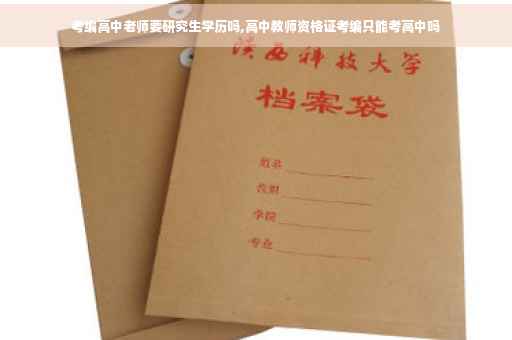 考编高中老师要研究生学历吗,高中教师资格证考编只能考高中吗
陕西科技大学
档案袋
姓名
学院
专业